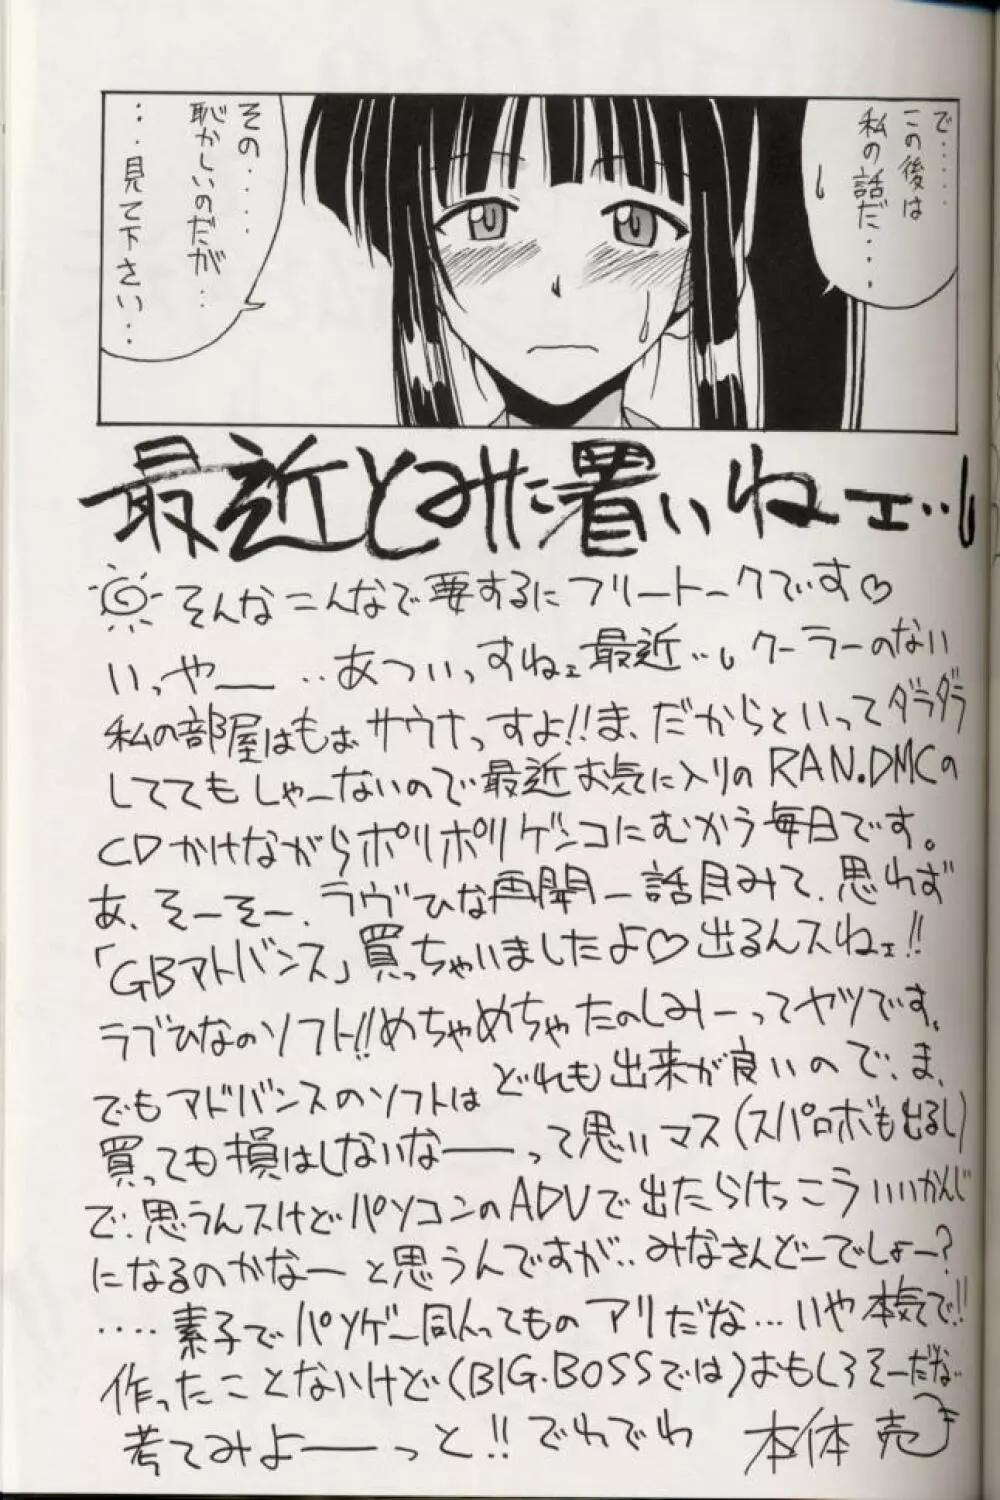 で‥‥‥
この後は
私の話だ・・・
その‥‥‥
恥かしいのだが‥
・・・見て下さい・・
最近とみに暑いねェ‥
そんなこんなで要するにフリートークです♡
いっやー‥あついっすねェ最近‥クーラーのない
私の部屋はもぉサウナっすよ!!ま、だからといってダラダラ
しててもしゃーないので最近お気に入りのRAN.DMCの
CDかけながらポリポリゲンコにむかう毎日です。
あ、そーそー、ラヴひな再開一話目みて、思わず
「GBアドバンス」買っちゃいましたよ♡出るんスねェ!!
ラブひなのソフト!!めちゃめちゃたのしみーってヤツです。
でもアドバンスのソフトはどれも出来が良いので、ま、
買っても損はしないなーって思いマス(スパロボも出るし)
で、思うんスけどパソコンのADVで出たらけっこういいかんじ
になるのかなーと思うんですが‥みなさんどーでしょー?
‥‥素子でパソゲー同人ってものアリだな…いや本気で!!
作ったことないけど(BIG.BOSSでは)おもしろそーだな
考てみよーっと!!でわでわ 本体 売